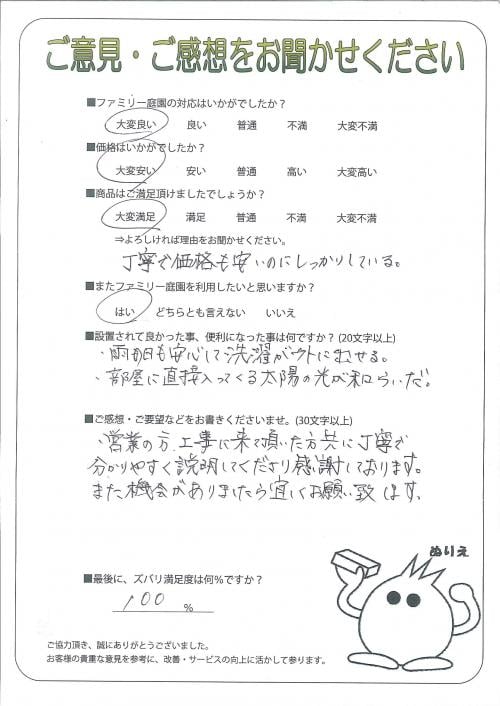 ご意見・ご感想をお聞かせください
■ファミリー庭園の対応はいかがでしたか？
大変良い 良い 普通 不満 大変不満
■価格はいかがでしたか？
大変安い 安い 普通 高い 大変高い
■商品はご満足頂けましたでしょうか？
大変満足 満足 普通 不満 大変不満
⇒よろしければ理由をお聞かせください。
丁寧で価格も安いのにしっかりしている。
■またファミリー庭園を利用したいと思いますか？
はい どちらとも言えない いいえ
■設置されて良かった事、便利になった事は何ですか？(20文字以上)
・雨の日も安心して洗濯が外にほせる。
・部屋に直接入ってくる太陽の光が和らいだ。
■ご感想・ご要望などをお書きくださいませ。(30文字以上)
・営業の方、工事に来て頂いた方共に丁寧で
分かりやすく説明してくださり感謝しております。
また機会がありましたら宜しくお願い致します。
ぬりえ
■最後に、ズバリ満足度は何%ですか？
100 %
ご協力頂き、誠にありがとうございました。
お客様の貴重な意見を参考に、改善・サービスの向上に活かして参ります。